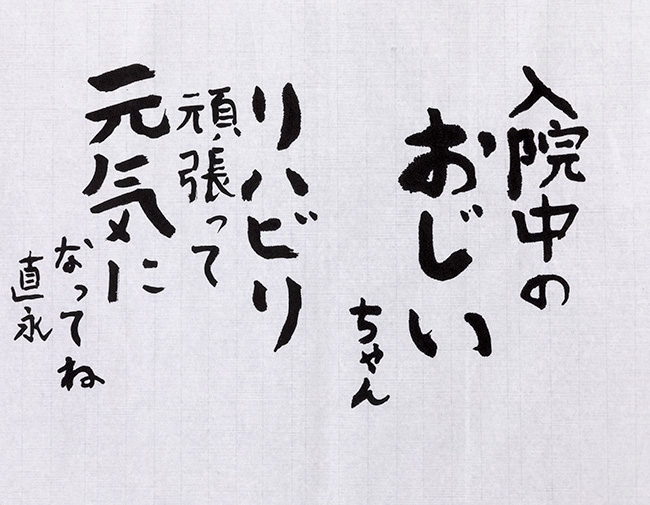 入院中の
おじい
ちゃん
リハビリ
頑張って
元気に
なってね
直永